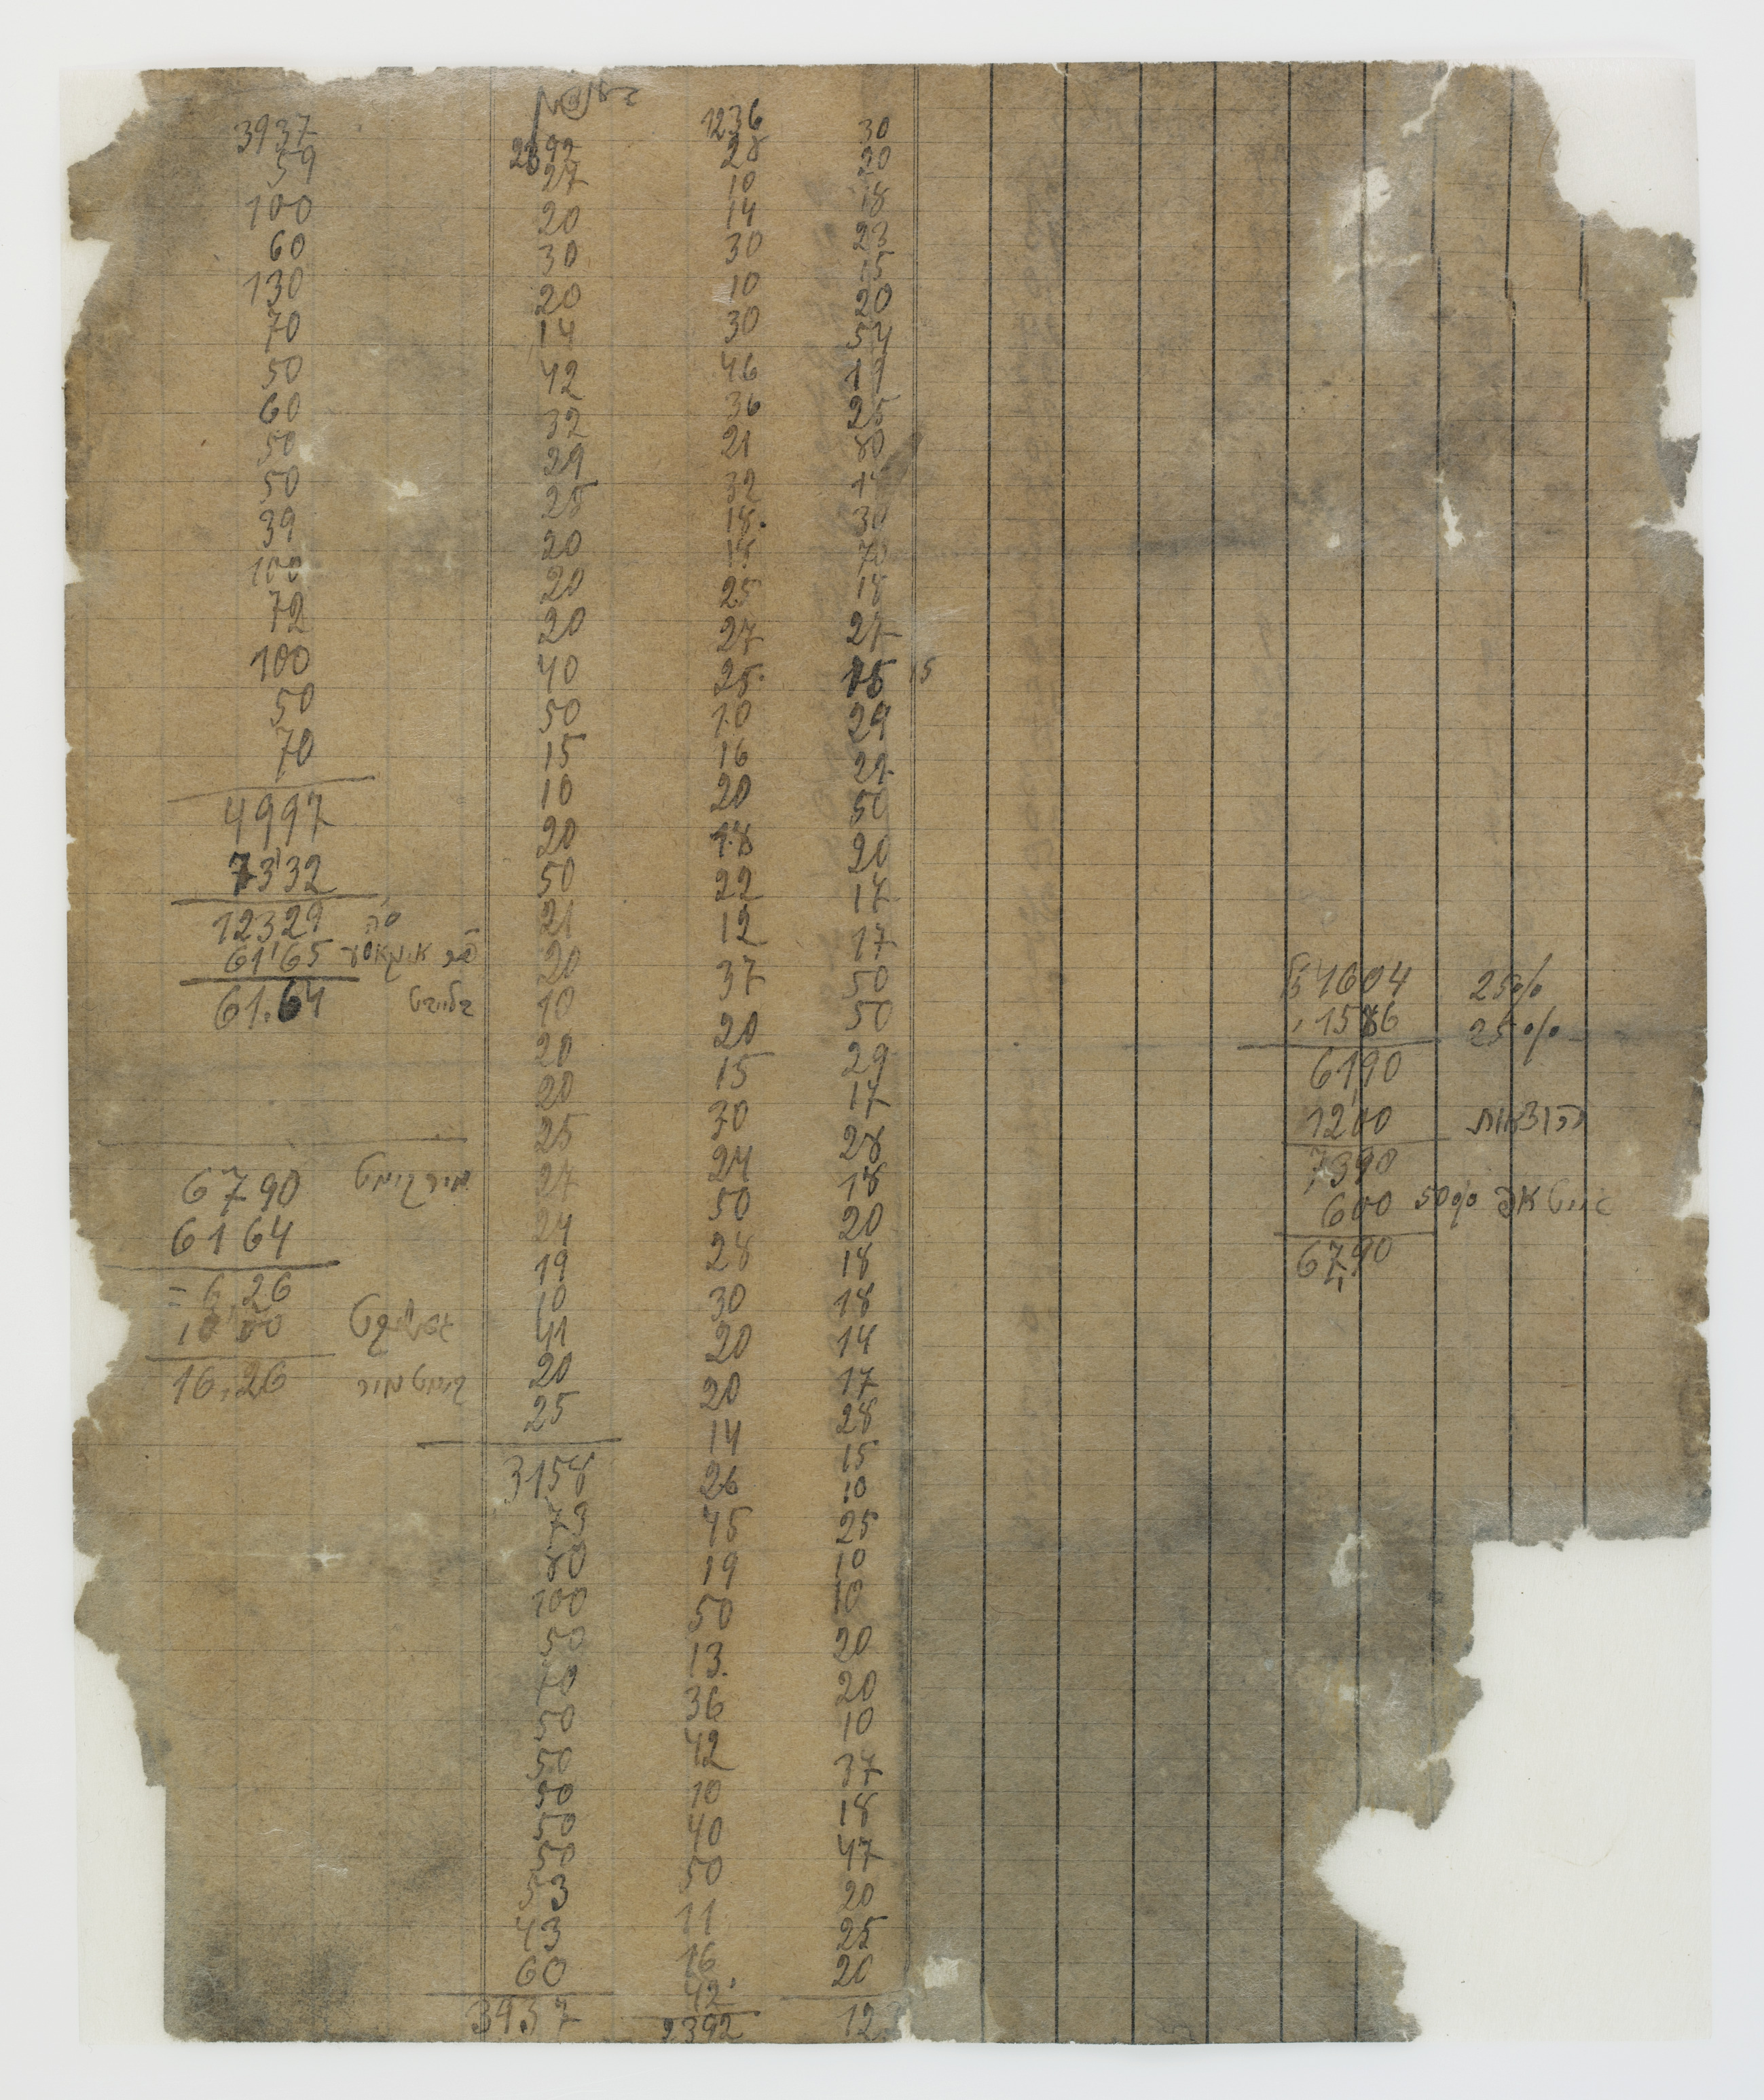 4604 25%
1586 25%
6190
1200 הוצאות
7390
600 50%
6790
30
20
18
23
15
20
54
19
25
80
30
70
18
27
15
29
29
50
20
17
17
50
50
29
17
28
18
20
18
18
14
17
28
15
10
25
10
10
20
20
10
37
18
47
20
25
20
12
1236
28
10
14
30
10
30
46
36
21
32
18
18
25
27
25
10
16
20
18
22
12
37
20
15
30
24
50
28
30
20
20
14
26
45
19
50
13
36
42
10
40
50
11
16
42
2392
2392
27
20
30
20
14
42
32
29
28
20
20
20
40
50
15
10
20
50
21
20
10
20
20
25
27
24
19
10
41
20
25
3158
73
80
100
50
70
50
50
50
50
50
53
43
60
3937
3937
59
100
60
130
70
50
60
50
50
39
100
72
100
50
70
4997
7332
12329 סה
6165
61.64 בלייבט
6790
6164
= 6 26
10 00
16.26